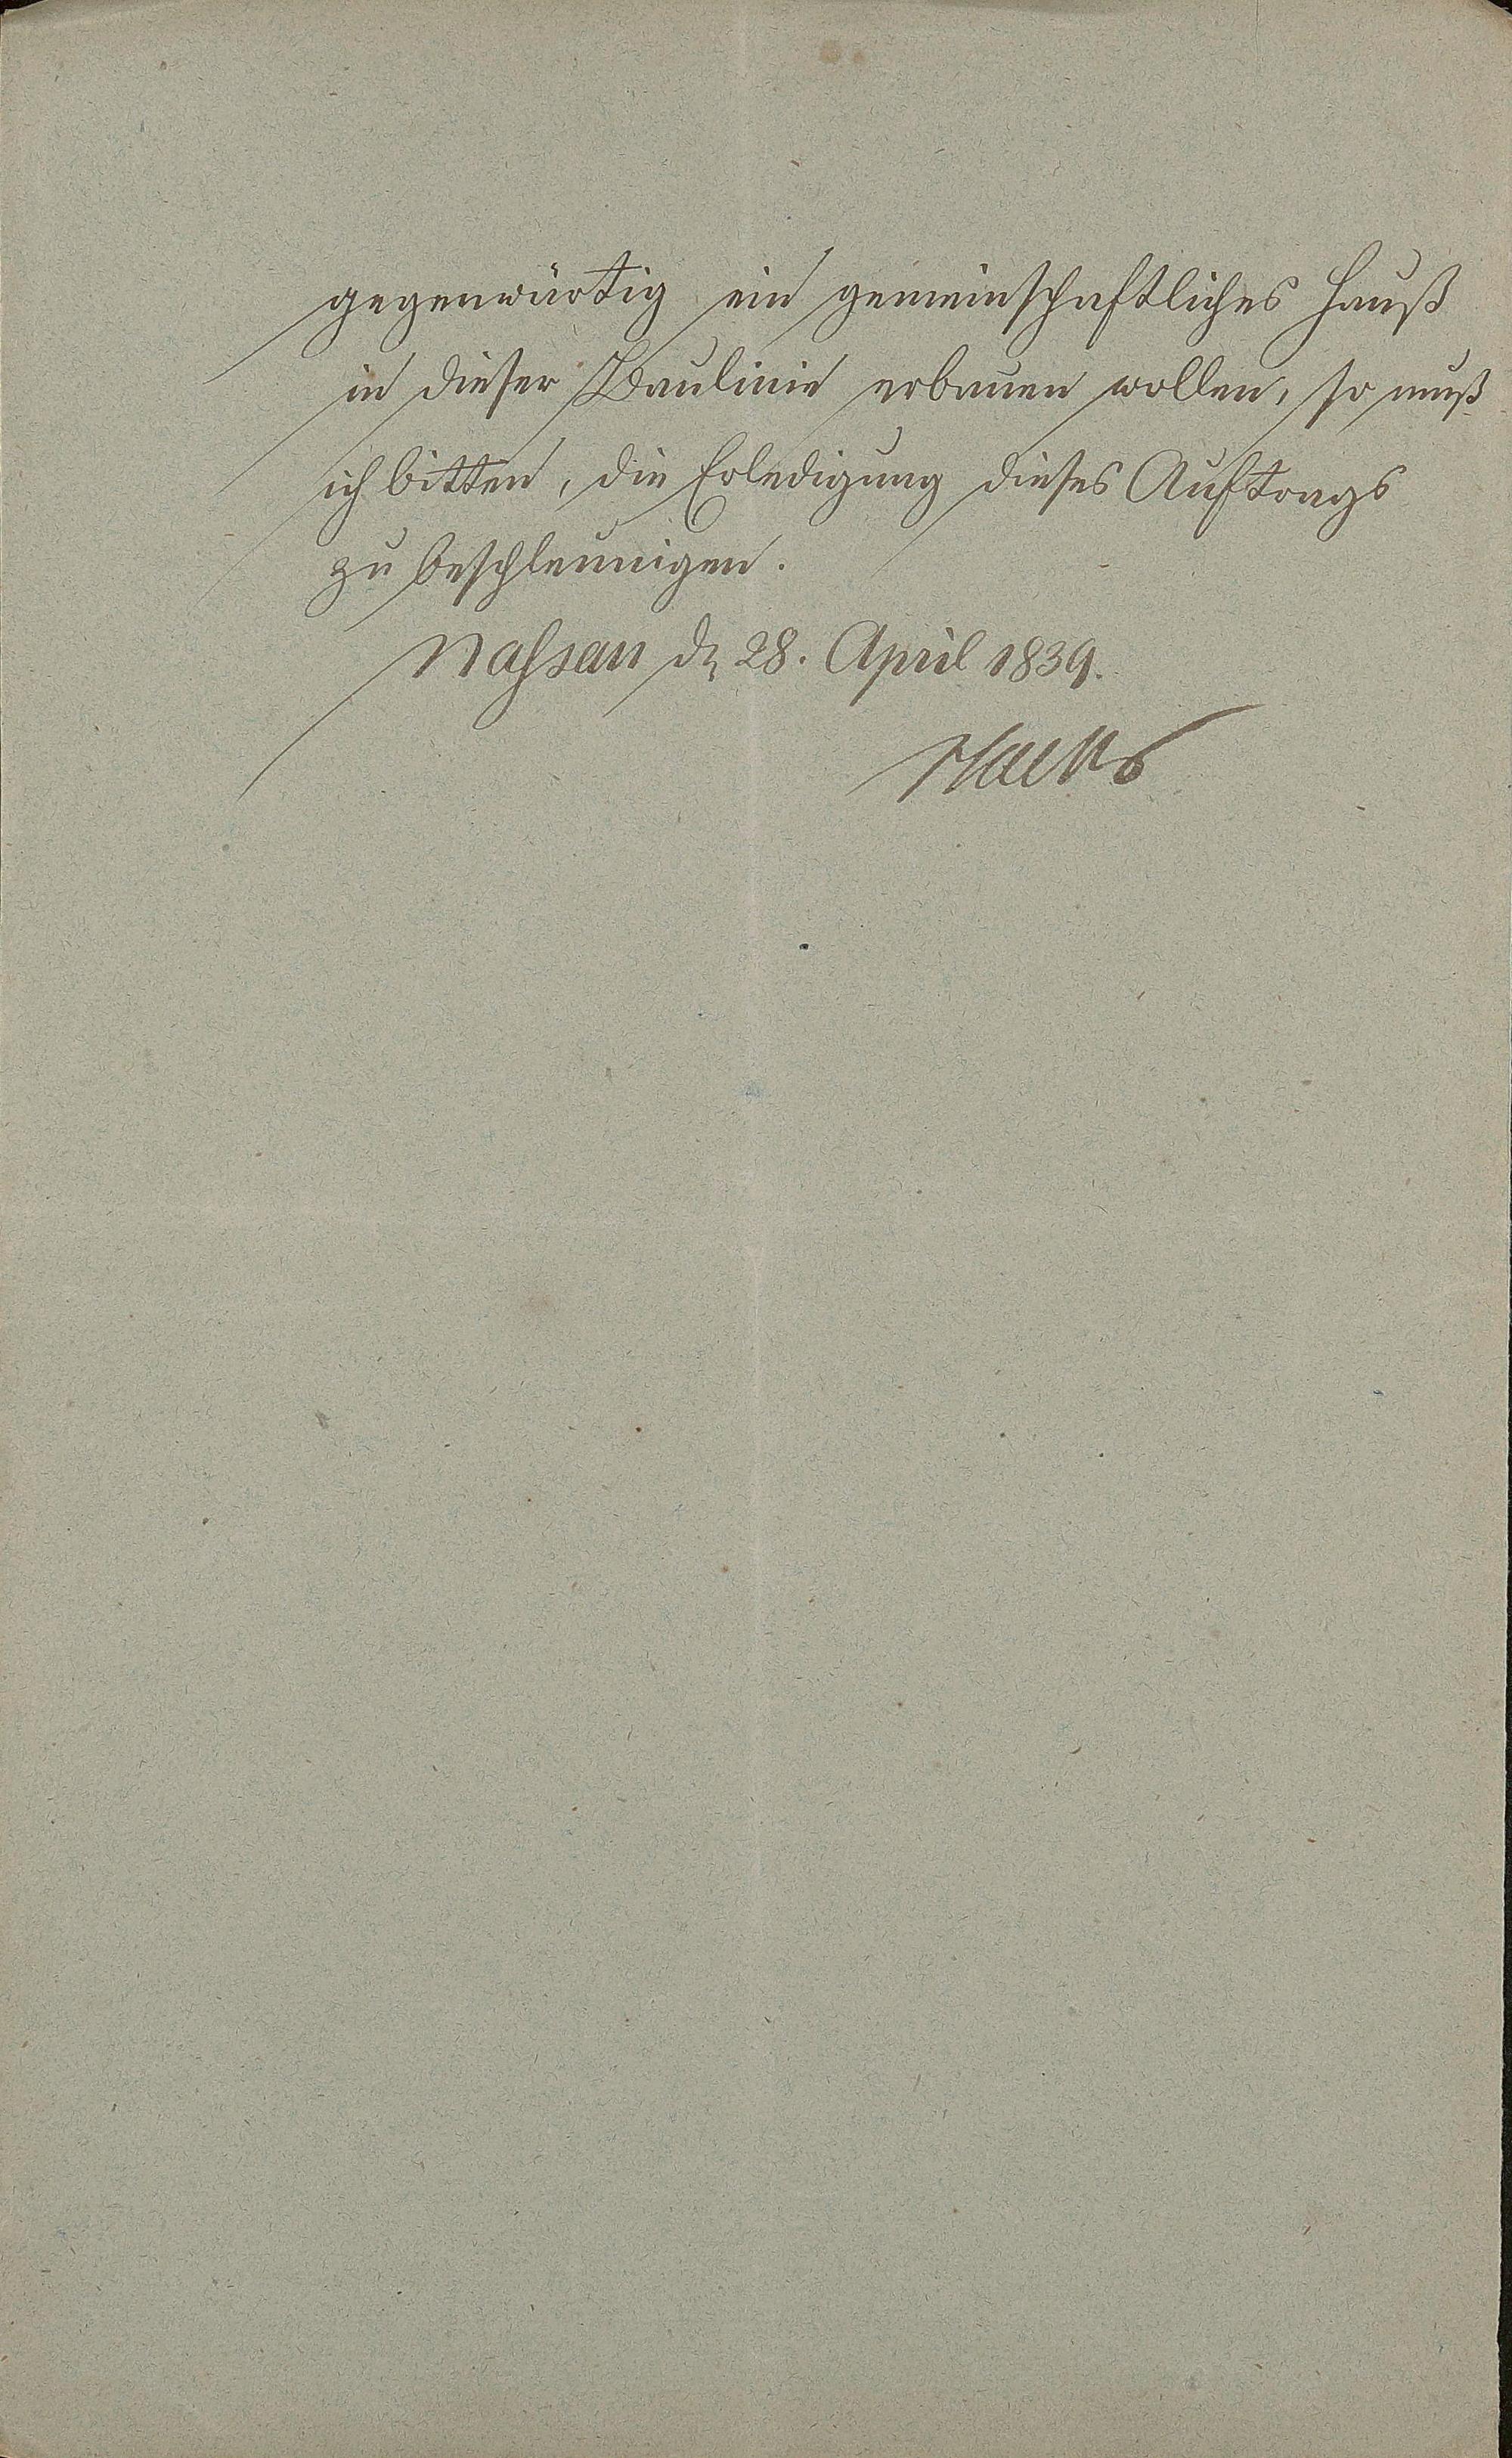 gegenwärtig ein gemeinschaftliches Hauß
in dieser Baulinie erbauen wollen, so muß
ich bitten, die Erledigung dieses Auftrags
zu beschleunigen.
Nassau d. 28. April 1839.